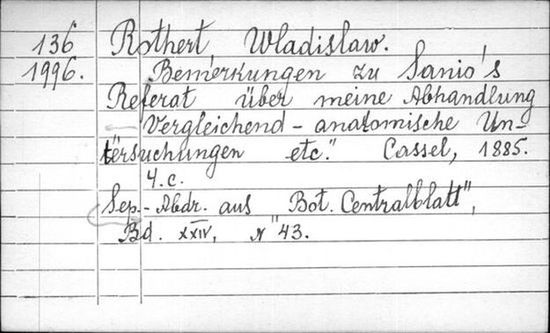 136 Rothert, Wladislaw.
1996. Bemerkungen zu Sanio's
Referat über meine Abhandlung
„Vergleichend-anatomische Un-
tersuchungen etc." Cassel, 1885.
4. c.
Sep.-Abdr. aus „Bot. Centralblatt",
Bd. XXIV, № 43.